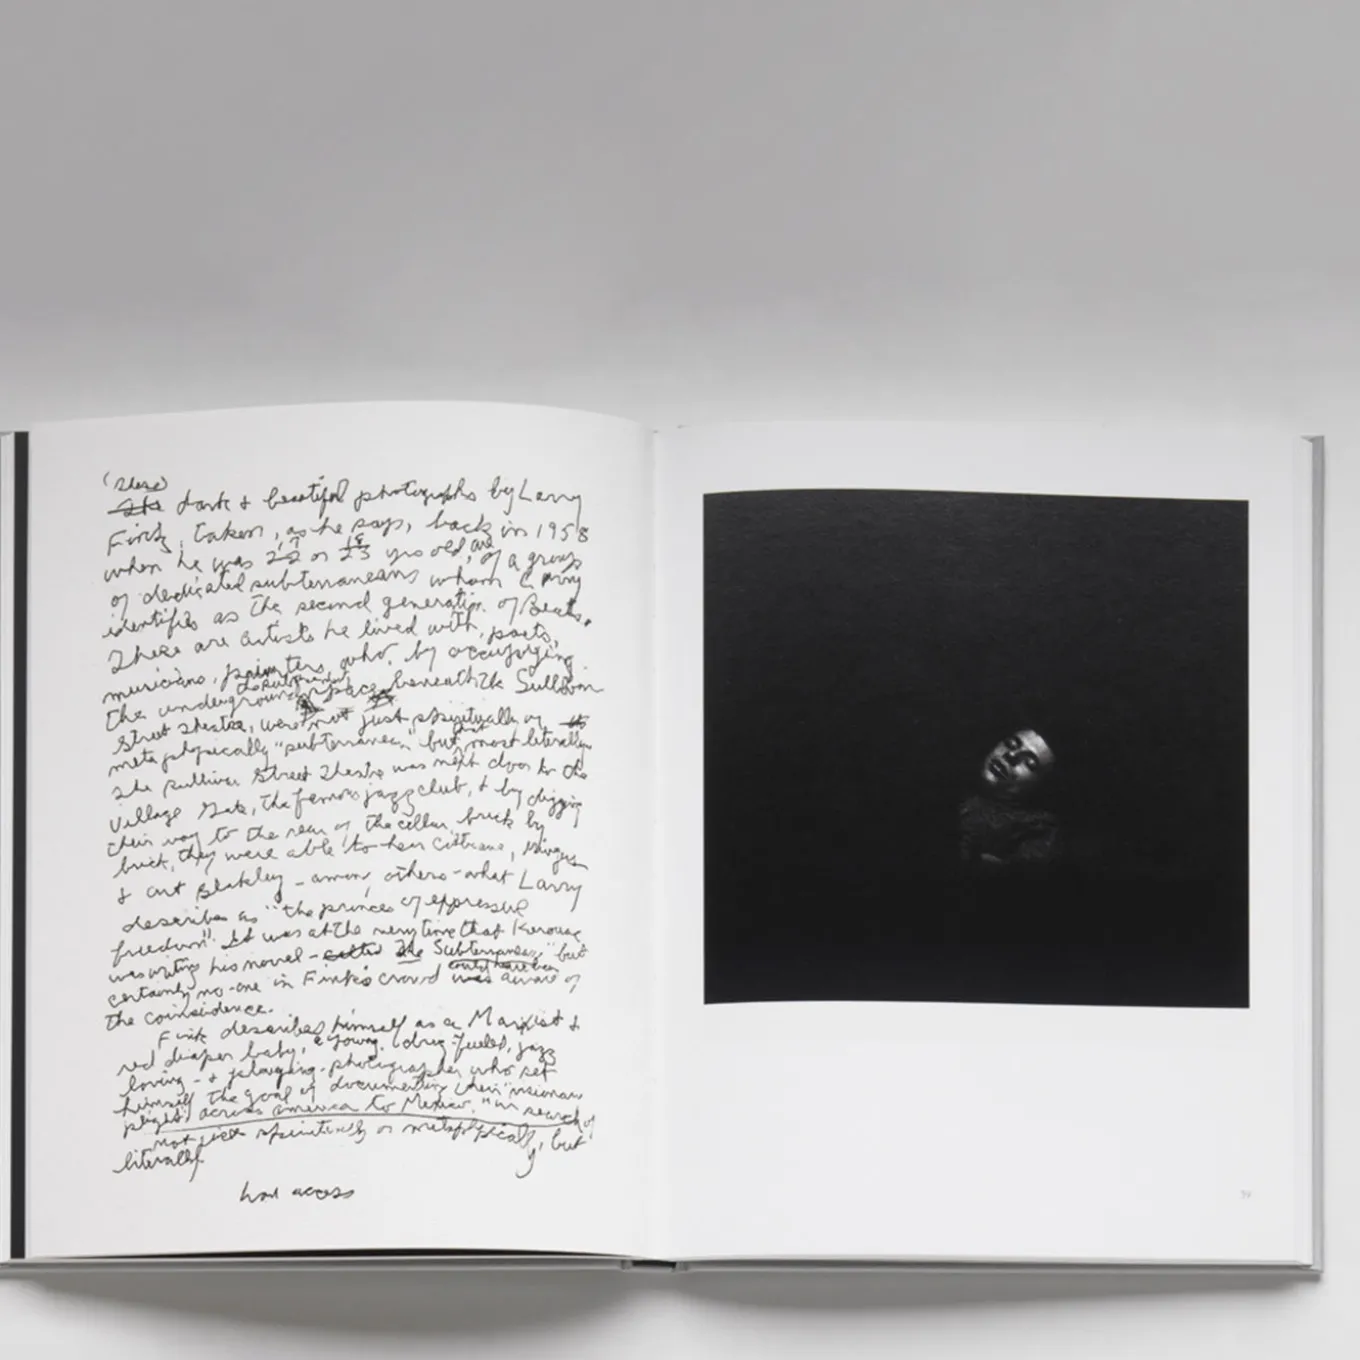 (These)
The dark & beautiful photographs by Larry
Fink, taken, as he says, back in 1958
when he was 22 or 23 yrs old, are of a group
17 18
of dedicated subterraneans whom Larry
identifies as the second generation of Beats.
These are artists he lived with, poets,
musicians, painters who, by occupying
the underground space beneath the Sullivan
Street Theatre, were not just spiritually or
metaphysically "subterranean" but most literally
The Sullivan Street Theatre was next door to the
Village Gate, the famous jazz club, & by digging
their way to the rear of the cellar brick by
brick, they were able to hear Coltrane, Mingus
& Art Blakley – among others – what Larry
describes as "the princes of oppressive
freedom". It was at the very time that Kerouac
was writing his novel – called The Subterraneans," but
certainly no-one in Fink's crowd was aware of
could have been
the coinsidence.
Fink describes himself as a Marxist &
red diaper baby, a young, drug-fueled, jazz
loving – & playing – photographer who set
himself the goal of documenting their "visionary
plight" across america to Mexico." in search of
not just spiritually or metaphysically, but
literally
had access
59